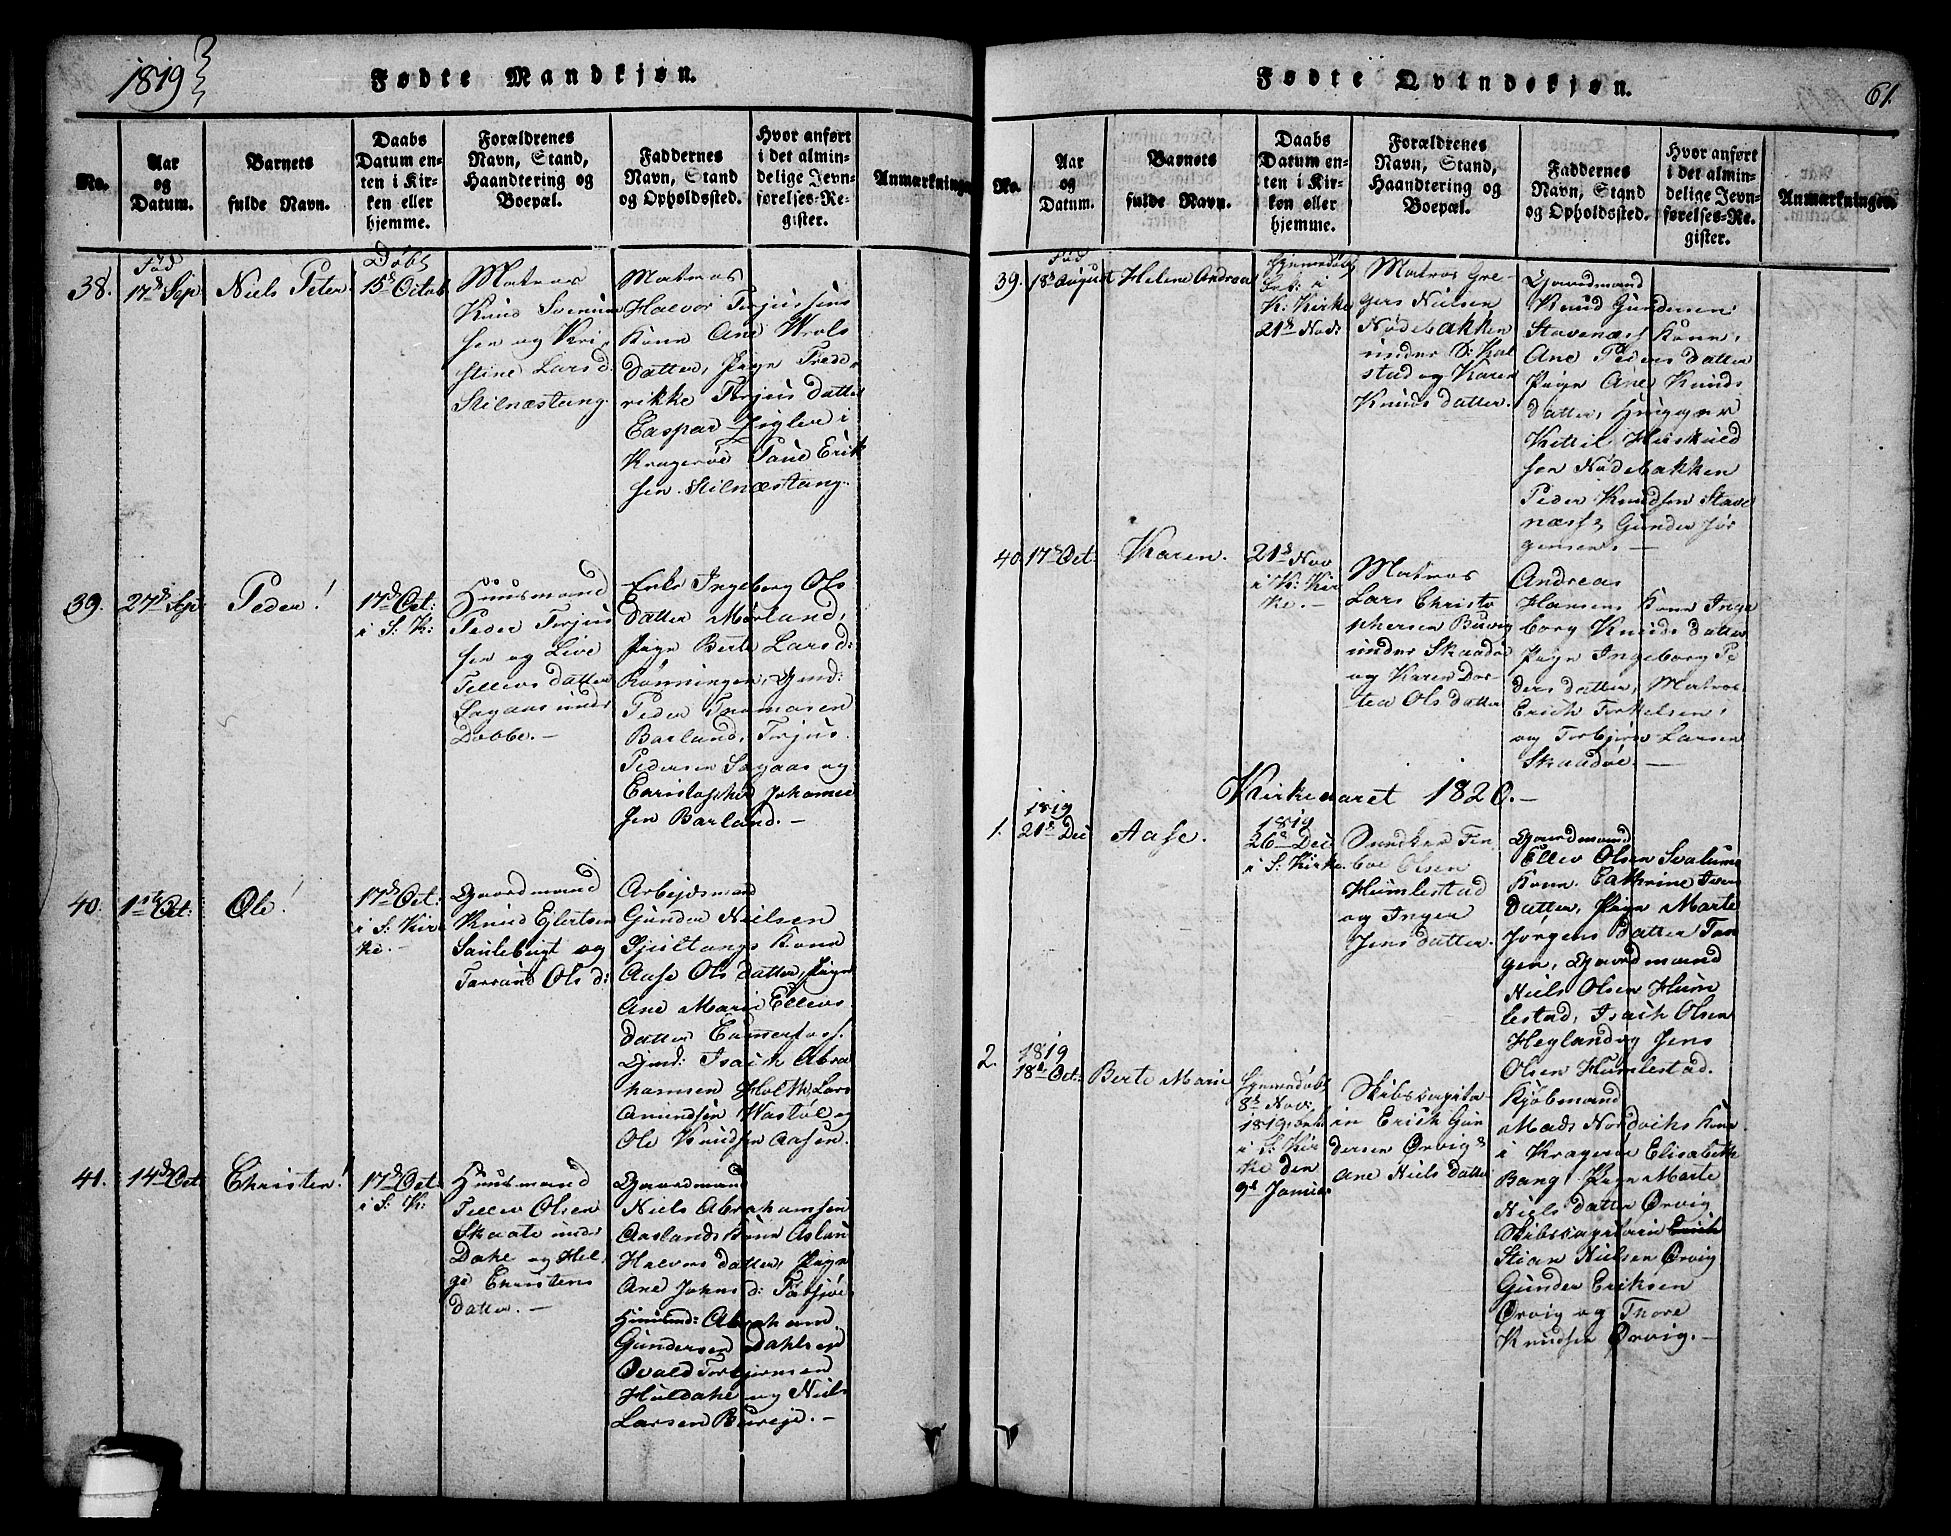 1819
Fødte Mandkjøn.
No.
Aar
og
Datum.
Barnets
fulde Navn.
Daabs
Datum en-
ten i Kir-
ken eller
hjemme.
Forældrenes
Navn, Stand,
Haandtering og
Boepæl.
Faddernes
Navn, Stand
og Opholdssted.
Hvor anført
i det almin-
delige Jevn-
førelses-Re-
gister.
Anmærkninge
38.
Fød
17d Sep
Niels Peter
Døbt
15d Octob
Matros
Knud Svenum
sen og Kri
stine Larsd
Stilnæstang.
Matros
Halvor Terjussens
Kone Ane Wrols
datter, Pign Frede
rikke Terjus datter
Caspar Zigler i
Kragerøe Paul Erik
sen Stilnæstang.
39.
27d Sep
Peder!
17d Oct:
i S: K:
Huusmand
Peder Terjus
sen og Live
Tellevs datter
Sagaas under
Dobbe.
Enke Ingeborg Ols
datter Mørland,
Pign Berte Larsd:
Rønningen, Gjmd:
Peder Thomasen
Barland, Terjus
Pedersen Sagaas og
Christopher Johanne
sen Barland.
40.
1ste Oct:
Ole!
17d Oct:
i S: Kir
ke.
Gaardmand
Knud Ejertsen
Saulebugt og
Tarrand Ols d:
Arbejdsmand
Gunder Nielsen
Gjultangs Kone
Aase Ols datter, Pign
Ane Marie Ellevs
datter Cammerfoss.
Gmd: Isaich Abra
hamsen Holth, Lars
Amundsen Wastøl og
Ole Knudsen Aasen.
41.
14d Oct
Christen!
17d Oct
i S: K:
Huusmand
Tellev Olsen
Skaate under
Dahl og Hel
ge Christens
datter.
Gaardmand
Niels Abrahamsen
Aaslands Kone Aslau
Halvors datter, Pign
Ane Johns d: Farsjøe
Huusmd: Abraham
Gundersen Dahlseje
Ovald Torbjørnsen
Huldahl og Niels
Larsen Bureje.
Fødte Qvindekjøn.
61.
No.
Aar
og
Datum.
Barnets
fulde Navn.
Daabs
Datum en-
ten i Kir-
ken eller
hjemme.
Forældrenes
Navn, Stand,
Haandtering og
Boepæl.
Faddernes
Navn, Stand
og Opholdssted.
Hvor anført
i det almin-
delige Jevn-
førelses-Re-
gister.
Anmærkningen
39.
Fød
18d August
Helene Andrea
Hjemmedøbt
i
K: Kirke
21d Nov:
Matros Gre
gers Nielsen
Nødebakken
under S: Kal
stad og Karen
Knuds datter.
Gaardmand
Knud Gundersen
Stavenæs Kone,
Ane Peders datter
Pign Ane Knuds
datter, Huusgmr
Kittil Huskuld
sen Nødebakken
Peder Knudsen Stave
næss Gunder Jør
gensen.
40
17d Oct:
Karen.
21d Nov
i K: Kir
ke.
Matros
Lars Christo
phersen Burvig
under Skaadøe
og Karen Dor-
tea Ols datter
Andreas
Hansens Kone Inge
borg Knuds datter
Pign Ingeborg Pe
ders datter, Matros
Erich Terkelsen,
og Torbjørn Larsen
Skaadøe.
Kirkeaaret 1820.
1.
1819
21d Dec
Aase.
1819
26d Dec
i S: Kirke.
Tor
boe Olsen
Humlestad
og Inger
Jens datter.
Gaardmand
Ellev Olsen Svalums
Kone. Cathrine Ivers
datter, Pign Marte
Jørgens datter Tan
gen, Gaardmand
Niels Olsen Hum
lestad, Isaich Olsen
Heglandog Jens
Olsen Humlestad.
2.
1819
18d Oct:
Berte Marie
Hjemmedøbt
8d Nov:
1819
i S: Kir
ke den
9d Januar
Skibscapita
in Erich Gun
dersen Ørvig
Ane Niels datter
Kjøbmand
Mads Nordviks Kone
i Kragerøe Elisabeth
Bang, Pign Marte
Niels datter Ørvig
Skibscapitain Erich
Stian Nielsen Ørvig
Gunder Eriksen
Ørvig og Thore
Knudsen Ørvig.